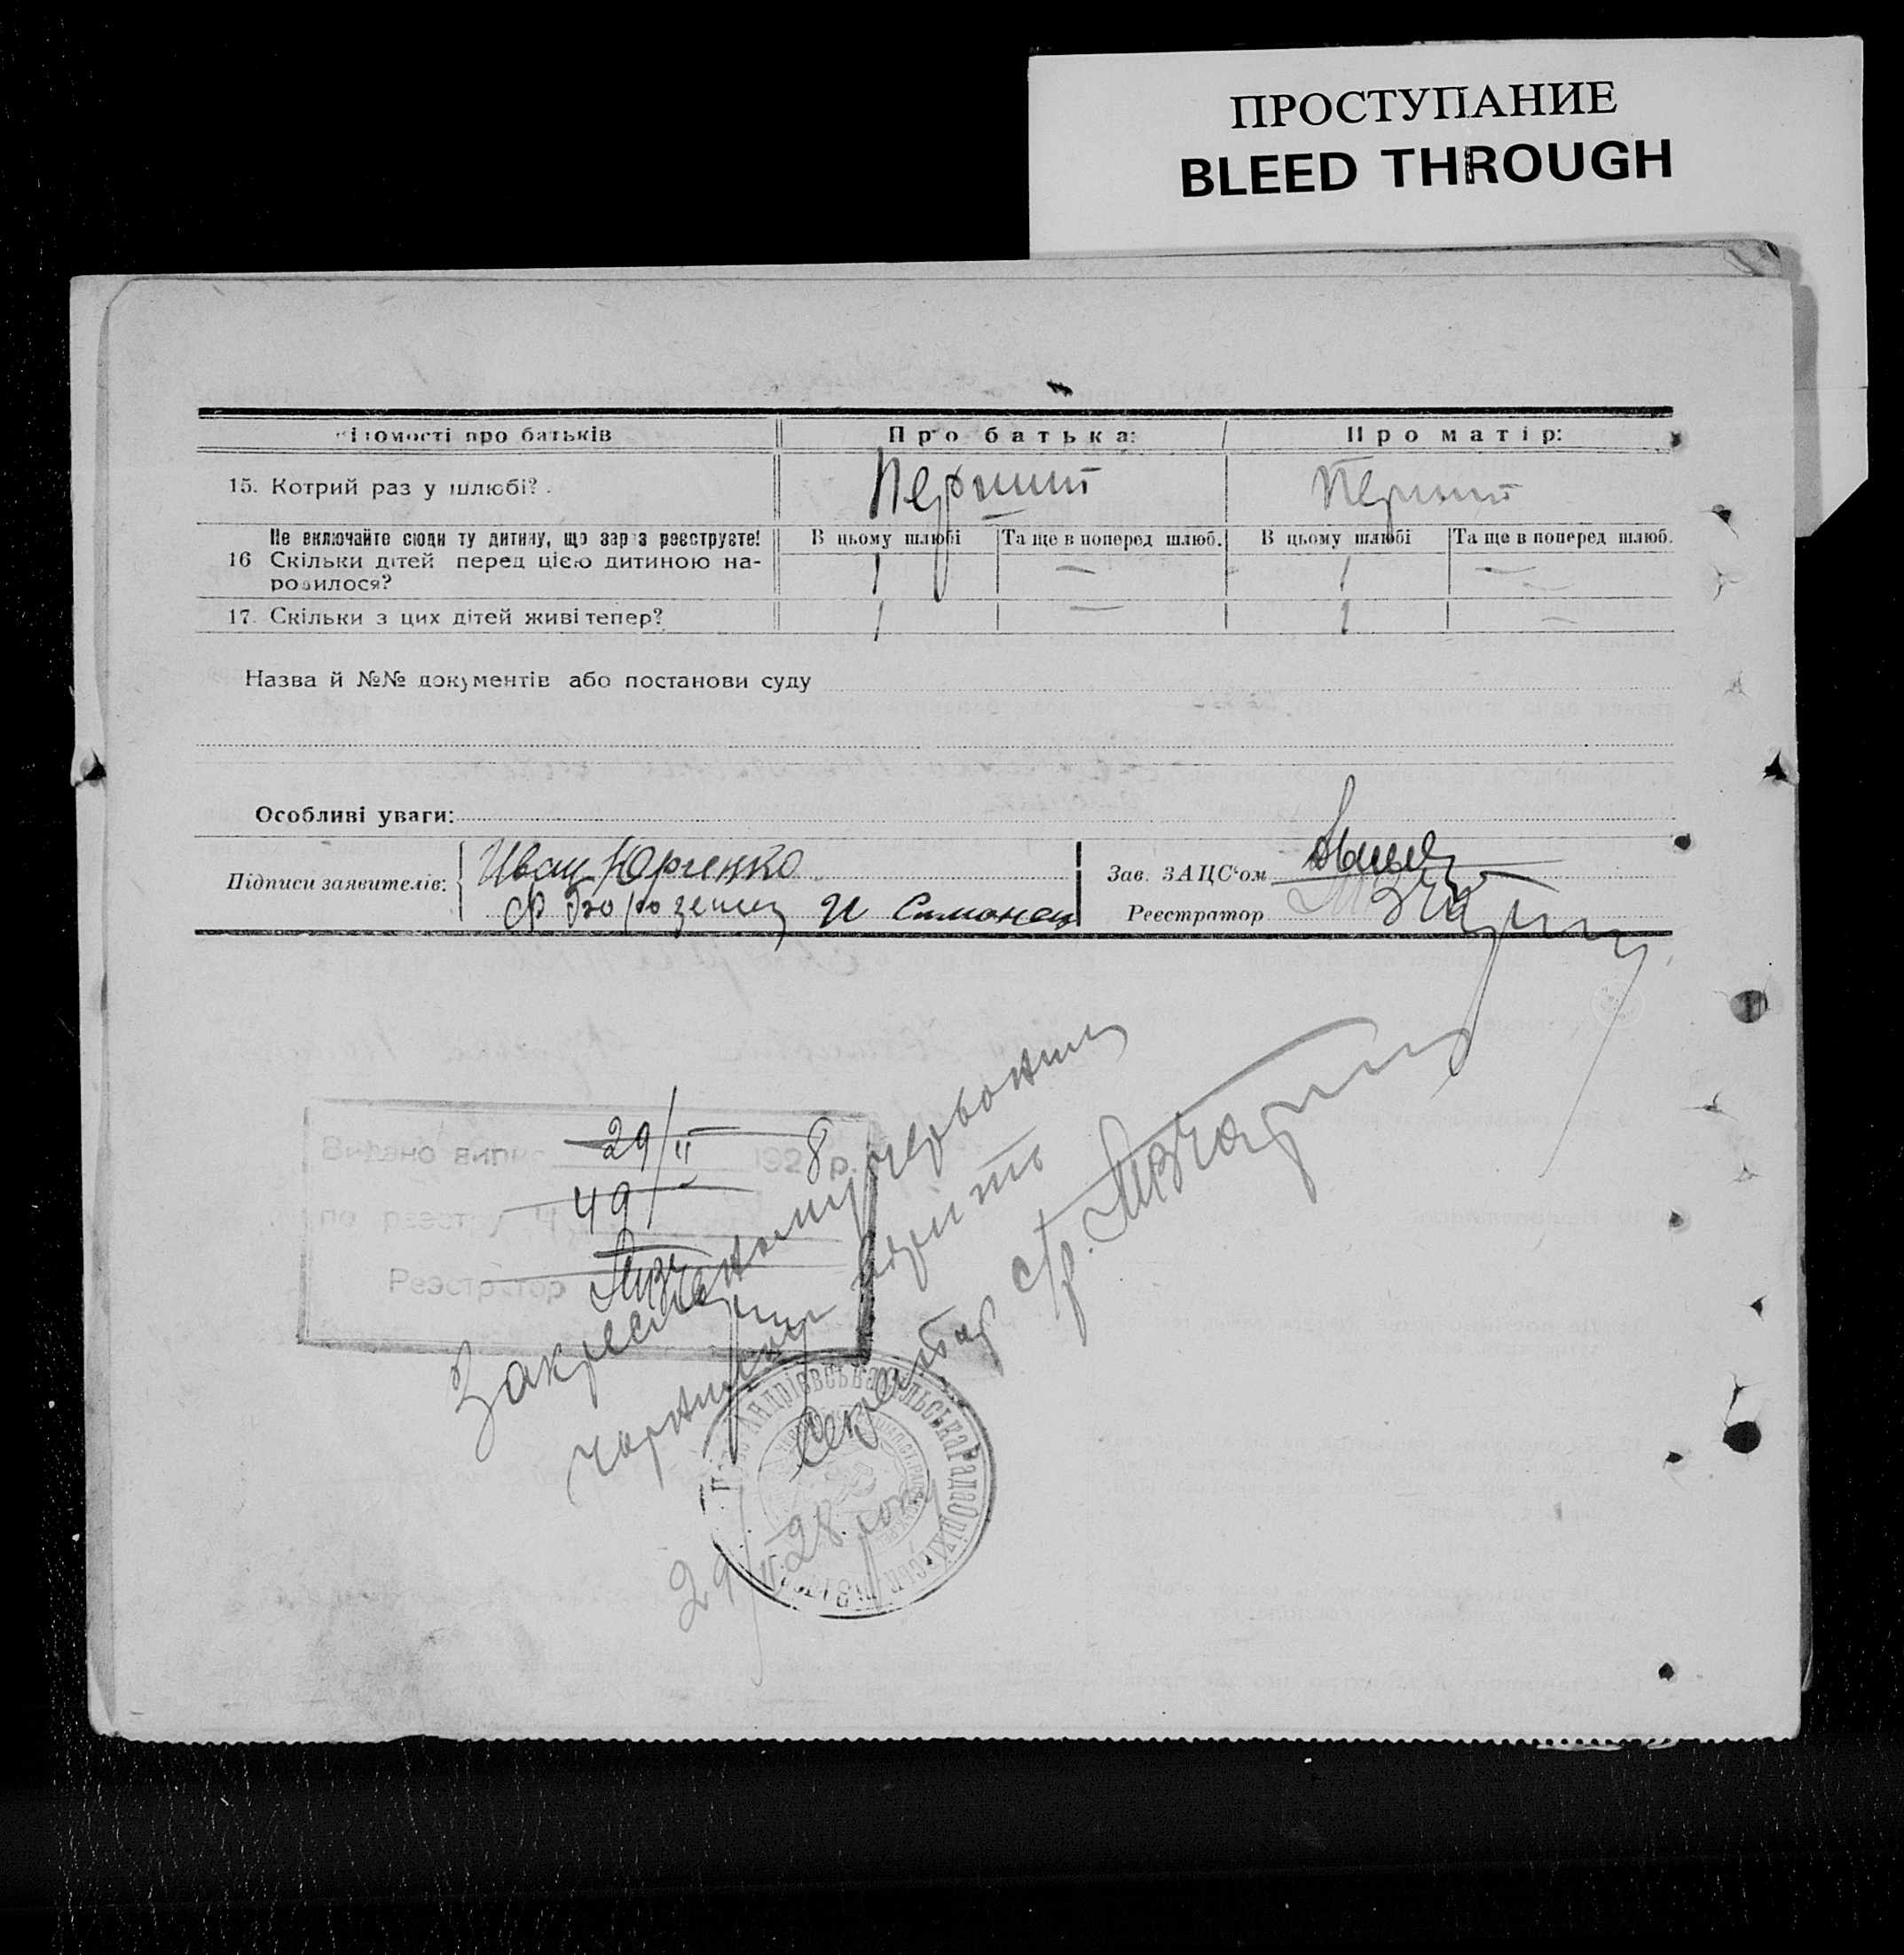 ПРОСТУПАНИЕ
BLEED THROUGH
ідомості про батьків
Про батька:
Про матір:
15. Котрий раз у шлюбі?
Перший
Перший
Не включайте сюди ту дитину, що зараз реєструєте!
В цьому шлюбі
Та ще в поперед шлюб.
В цьому шлюбі
Та ще в поперед шлюб.
16 Скільки дітей перед цією дитиною на-
родилося?
1 — 1 —
17. Скільки з цих дітей живі тепер?
1 — 1 —
Назва й №№ документів або постанови суду
Особливі уваги:
Підписи заявителів:
Иван Юрченко
И Симонец
Зав. ЗАЦС'ом
Реєстратор
Видано випис 29/II 1928 р.
по реєстру Ч. 49
Реєстратор
Закресленому червоним
чорнилом вірить
Секретар с/р.
Андріївська сільська Рада Оріхівськ
29/II 28 року